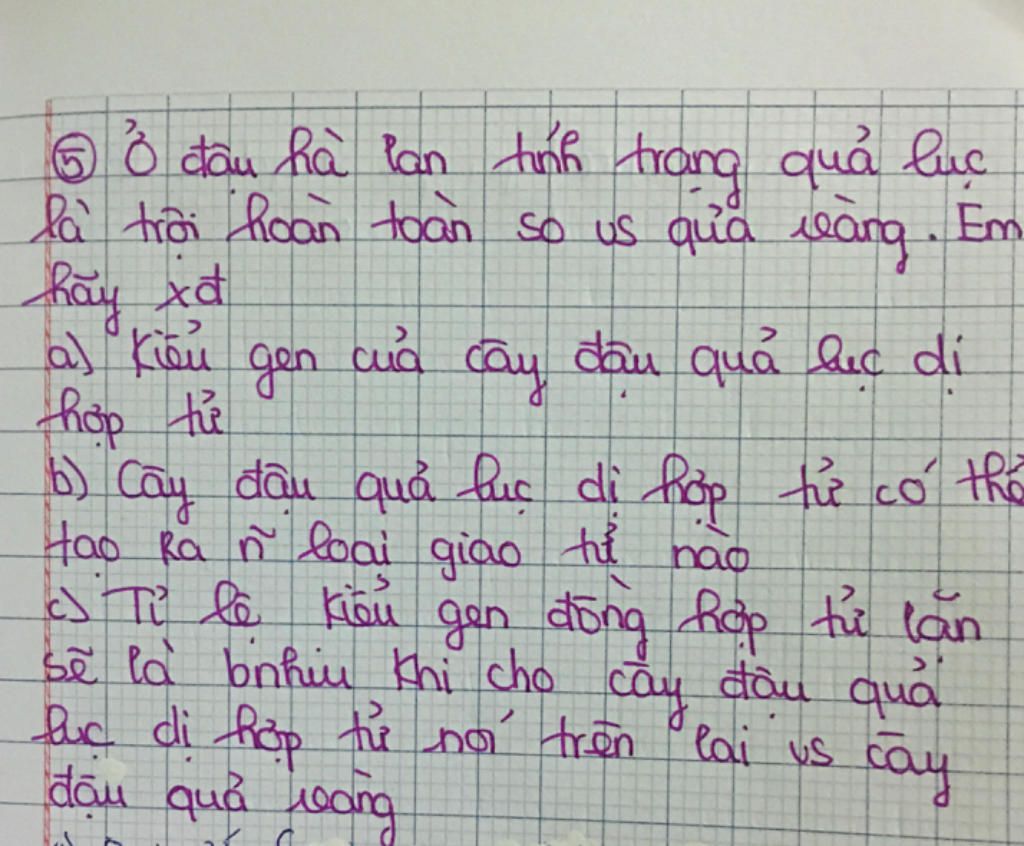 ⑤ Ở đậu hà lan tính trạng quả lục
là trội hoàn toàn so vs quả vàng. Em
hãy xđ
a) Kiểu gen của cây đậu quả lục dị
hợp tử
b) Cây đậu quả lục dị hợp tử có thể
tạo ra ñ loại giao tử nào
c) Tỉ lệ kiểu gen đồng hợp tử lặn
sẽ là bnhiu khi cho cây đậu quả
lục dị hợp tử nói trên lai vs cây
đậu quả vàng